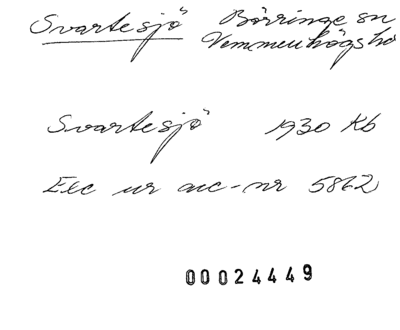 Svartesjö Börringe sn
Vemmenhögs hd
Svartesjö 1930 Kb
Exc ur acc-nr 5862
00024449